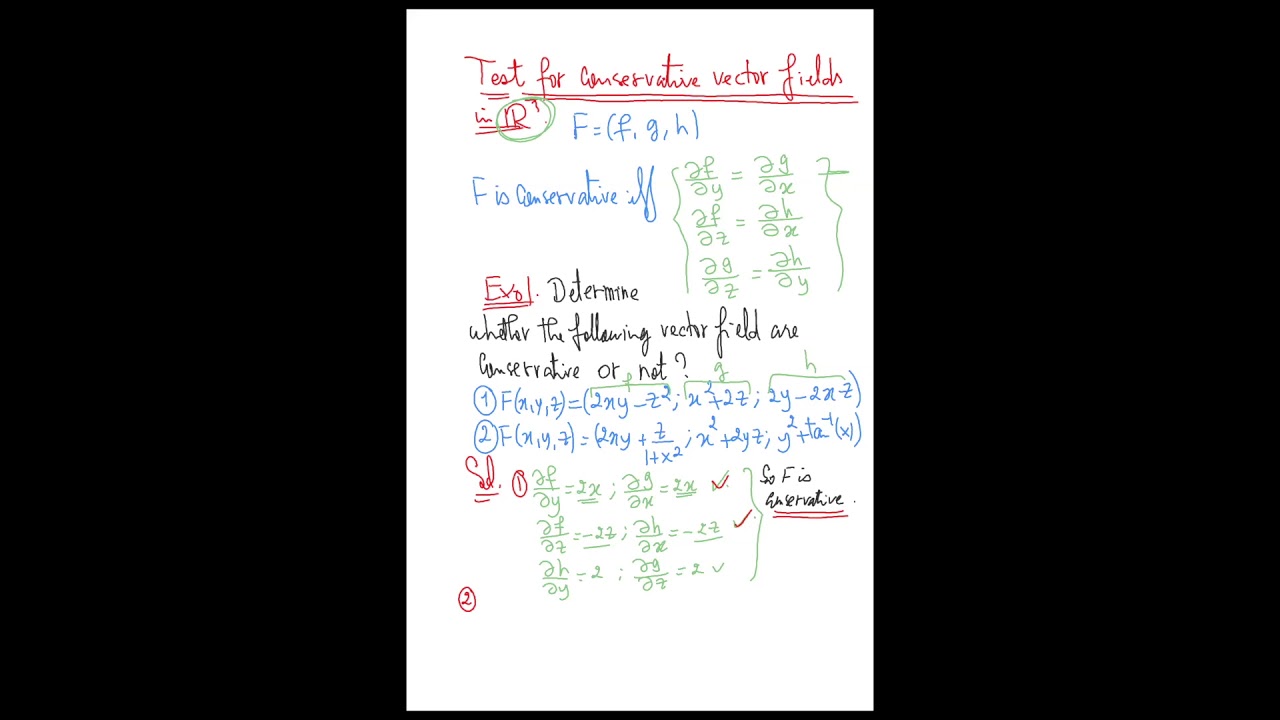 Test for conservative vector fields
in ℝ³. F = (f, g, h)
F is conservative iff { ∂f/∂y = ∂g/∂x
∂f/∂z = ∂h/∂x
∂g/∂z = ∂h/∂y }
Exo1. Determine
whether the following vector field are
conservative or not?
f g h
① F(x,y,z) = (2xy − z²; x² + 2z; 2y − 2xz)
② F(x,y,z) = (2xy + z/(1+x²); x² + 2yz; y² + tan⁻¹(x))
Sol. ① ∂f/∂y = 2x ; ∂g/∂x = 2x ✓ } So F is
conservative.
∂f/∂z = −2z ; ∂h/∂x = −2z ✓
∂h/∂y = 2 ; ∂g/∂z = 2 ✓
②